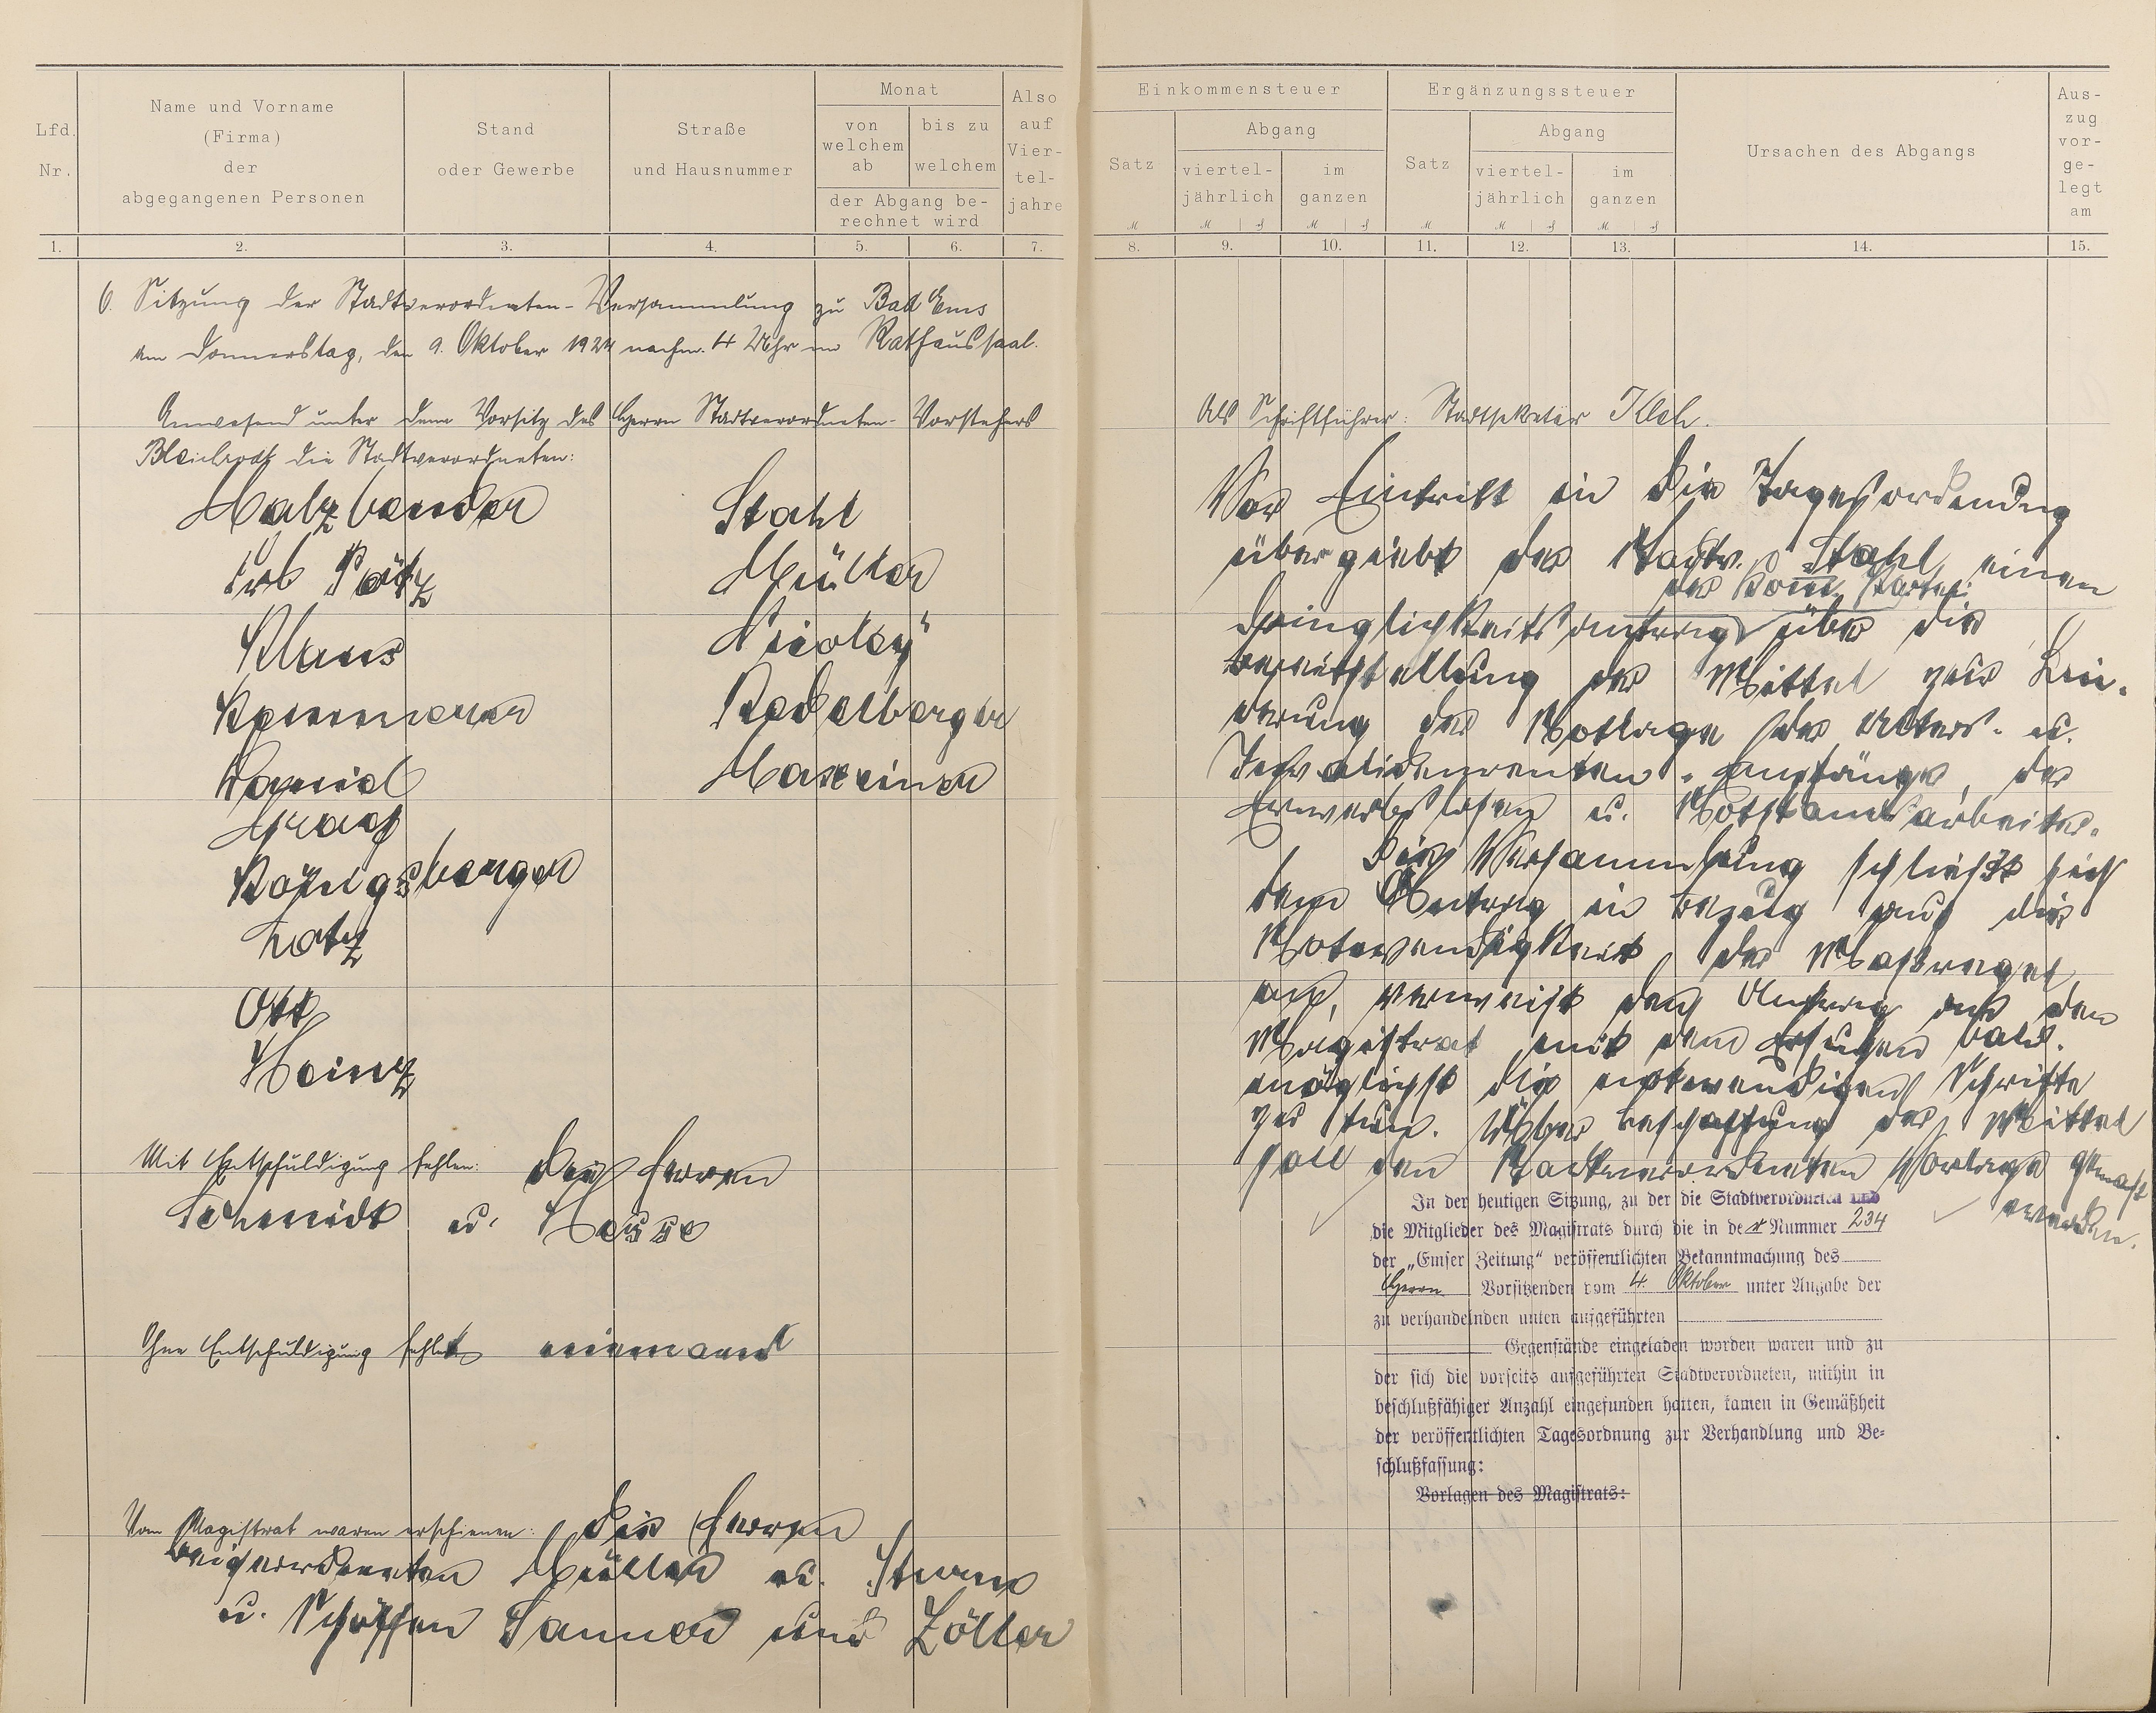 Lfd. Nr.
Name und Vorname
(Firma)
der
abgegangenen Personen
Stand
oder Gewerbe
Straße
und Hausnummer
Monat
von welchem ab
bis zu welchem
der Abgang be-
rechnet wird
Also auf Vier-tel-jahre
Einkommensteuer
Satz
Abgang
viertel-jährlich
im ganzen
Ergänzungssteuer
Satz
Abgang
viertel-jährlich
im ganzen
Ursachen des Abgangs
Aus-zug vor-ge-legt am
1. 2. 3. 4. 5. 6. 7. 8. 9. 10. 11. 12. 13. 14. 15.
6. Sitzung der Stadtverordneten-Versammlung zu Bad Ems
am Donnerstag, den 9. Oktober 1924 nachm. 4 Uhr im Rathaussaal.
Anwesend unter dem Vorsitz des Herrn Stadtverordneten-Vorstehers
die Stadtverordneten:
Malzbender
Pötz
Klaus
Daniel
Graf
Königsberger
Lotz
Ott
Heinz
Stahl
Müller
Nicolay
Kadelberger
Maxeiner
Mit Entschuldigung fehlen: die Herren
Schmidt u. Hasse
Ohne Entschuldigung fehlt niemand
Vom Magistrat waren erschienen: die Herren
Beigeordneten Müller u. Sturm
u. Schöffen Sanner und Zöller
Als Schriftführer: Stadtsekretär
Vor Eintritt in die Tagesordnung
übergiebt der Stadtv. Stahl einen
der Kom. Partei
Dringlichkeitsantrag über die
Bereitstellung der Mittel zur Lin-
derung der Notlage der Alters- u.
Invalidenrenten-Empfänger, der
Erwerbslosen u. Notstandsarbeiter.
Die Versammlung schließt sich
dem Antrag in Bezug auf die
Notwendigkeit der Maßregel
an, verweist den Antrag an den
Magistrat mit dem Ersuchen bald-
möglichst die notwendigen Schritte
zu tun. Über Beschaffung der Mittel
soll den Stadtverordneten Vorlage gemacht
werden.
In der heutigen Sitzung, zu der die Stadtverordneten und
die Mitglieder des Magistrats durch die in der Nummer 234
der „Emser Zeitung“ veröffentlichten Bekanntmachung des
Herrn Vorsitzenden vom 4. Oktober unter Angabe der
zu verhandelnden unten aufgeführten
Gegenstände eingeladen worden waren und zu
der sich die vorseits aufgeführten Stadtverordneten, mithin in
beschlußfähiger Anzahl eingefunden hatten, kamen in Gemäßheit
der veröffentlichten Tagesordnung zur Verhandlung und Be-
schlußfassung:
Vorlagen des Magistrats: